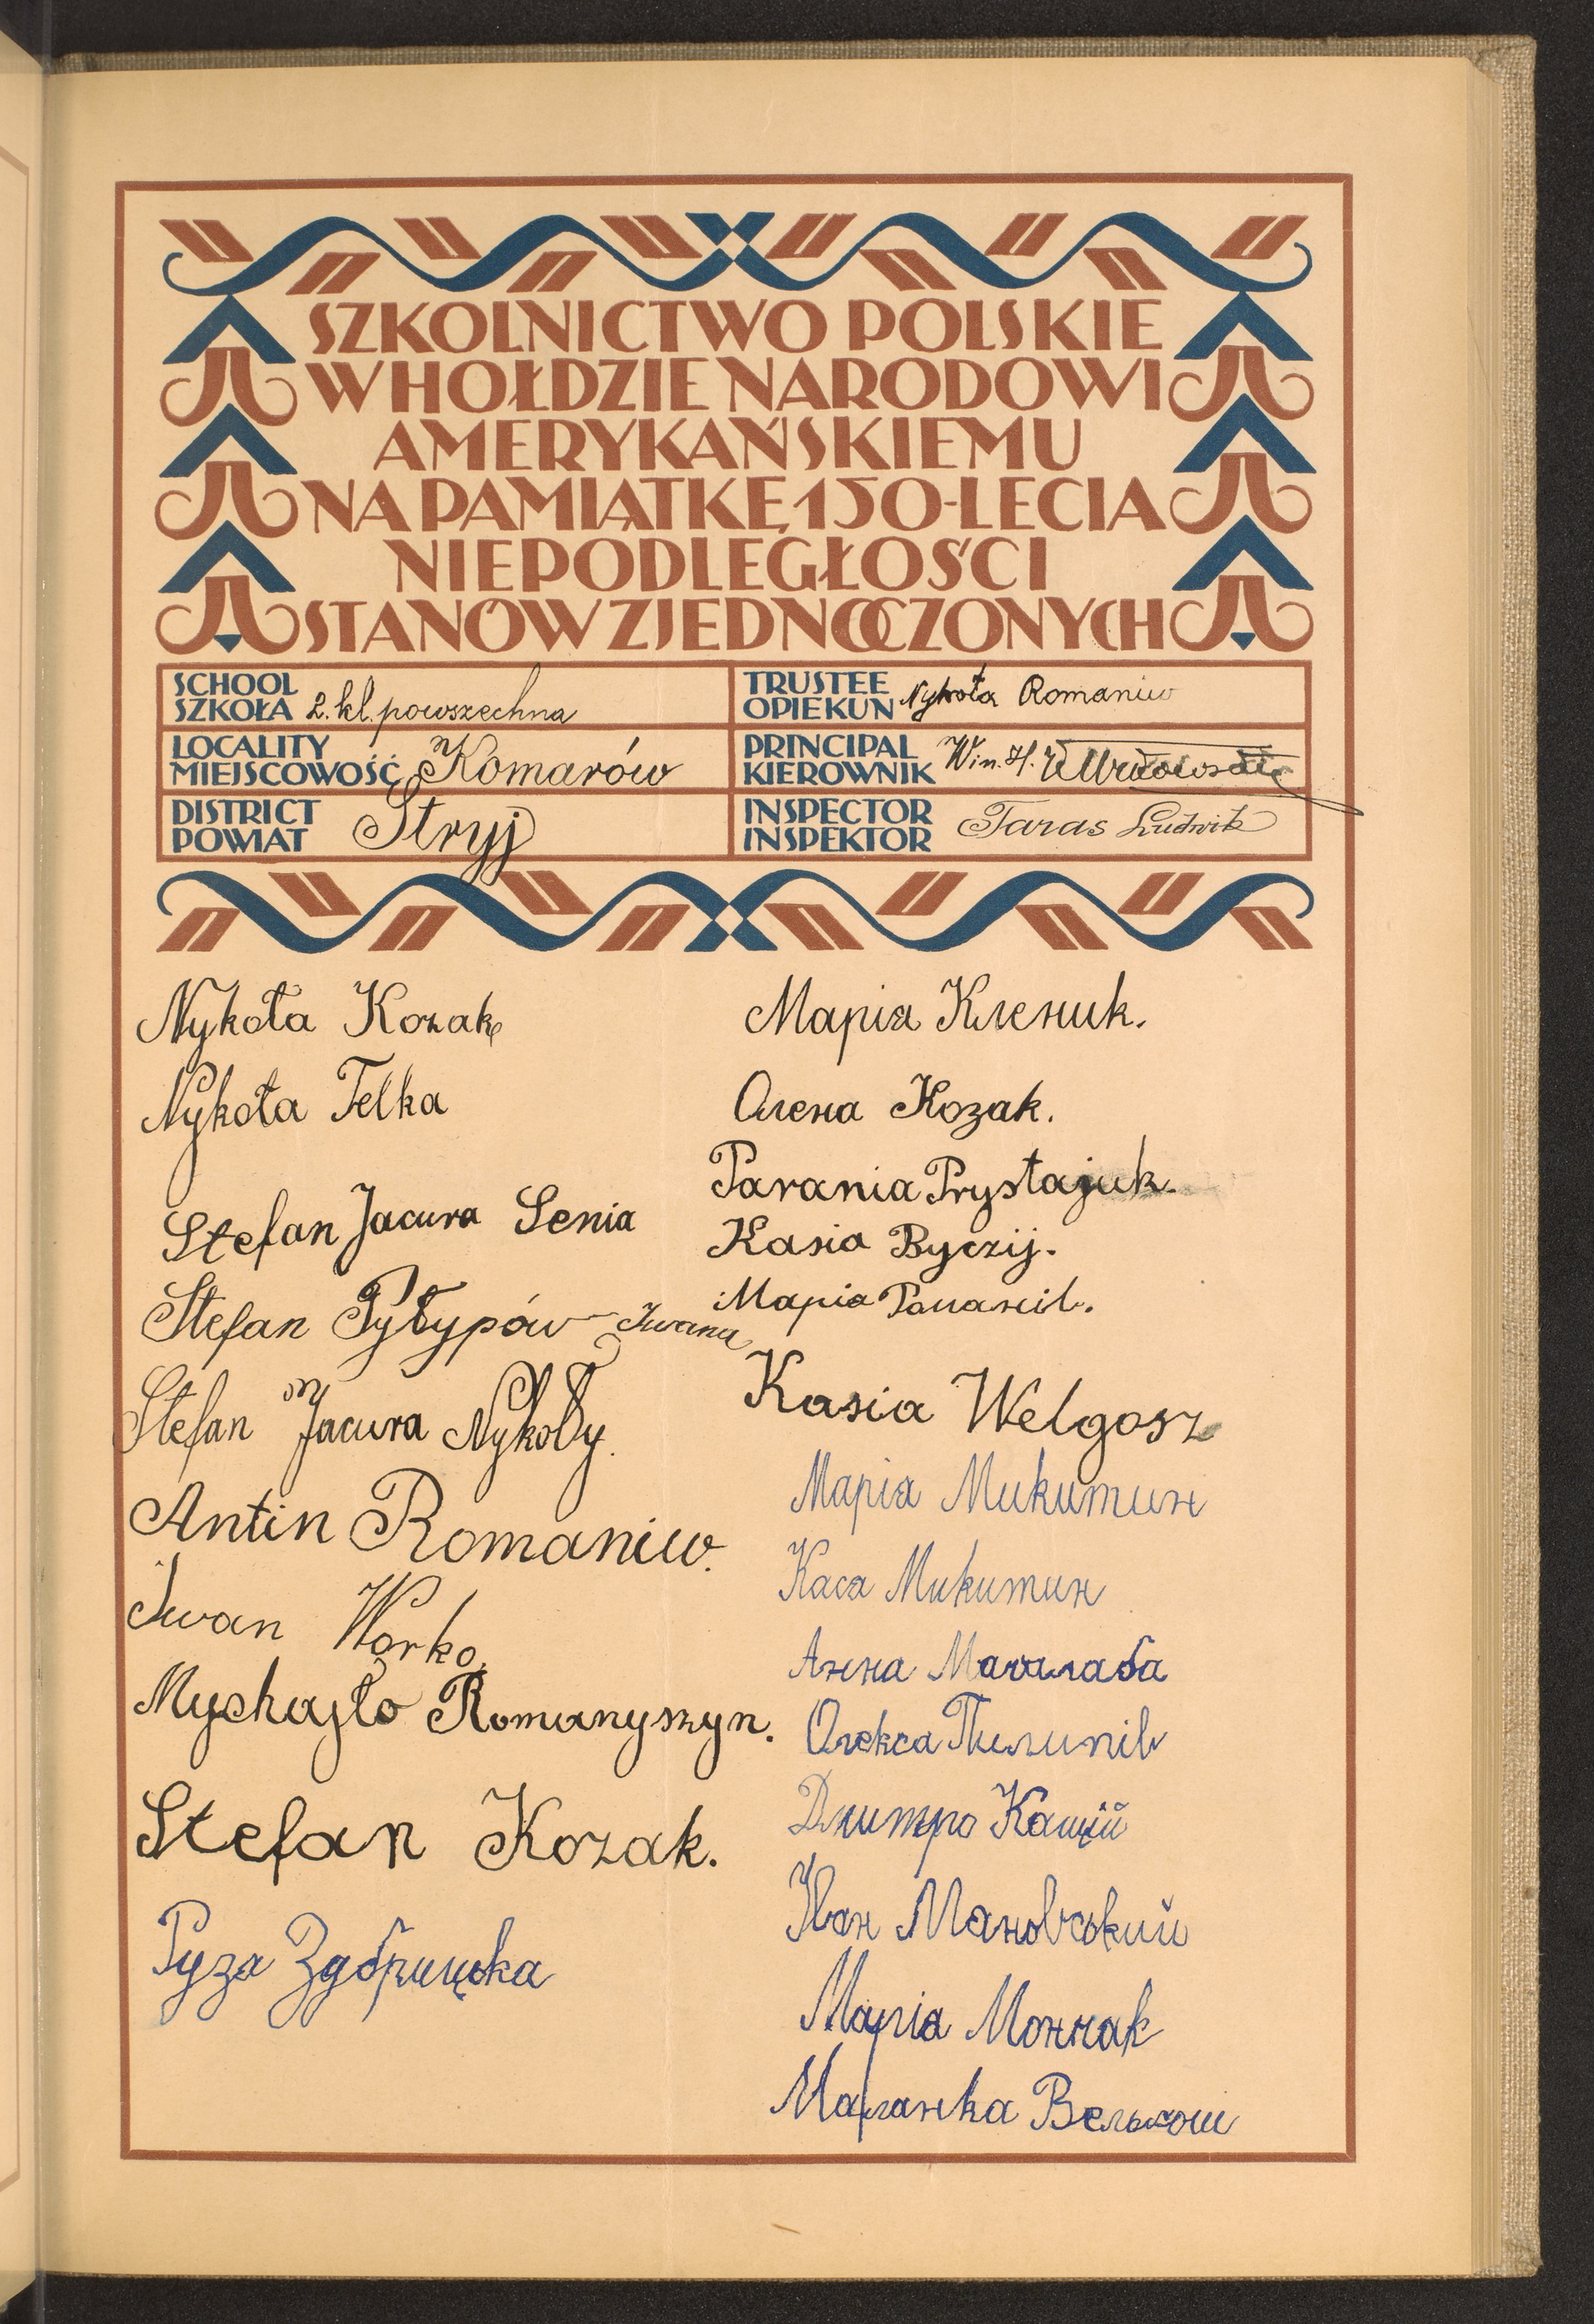 SZKOLNICTWO POLSKIE
W HOŁDZIE NARODOWI
AMERYKAŃSKIEMU
NA PAMIĄTKĘ 150-LECIA
NIEPODLEGŁOŚCI
STANÓW ZJEDNOCZONYCH
SCHOOL
SZKOŁA 2. kl. powszechna
TRUSTEE
OPIEKUN Nykoła Romaniw
LOCALITY
MIEJSCOWOŚĆ Komarów
PRINCIPAL
KIEROWNIK Win. H.
DISTRICT
POWIAT Stryj
INSPECTOR
INSPEKTOR Taras Ludwik
Nykoła Kozak
Nykoła Felka
Stefan Jacura Senia
Stefan Pyłypów Iwana
Stefan Jacura Nykoły.
Antin Romaniw.
Iwan Worko.
Mychajło Romanyszyn.
Stefan Kozak.
Рузя
Марія Кленик.
Олена Козак.
Parania Prystajuk.
Kasia Byczij.
Марія Романів.
Kasia Welgosz
Марія Микитин
Кася Микитин
Анна
Олекса Пилипів
Дмитро Кашій
Іван
Марія Мончак
Маланка Вельгош